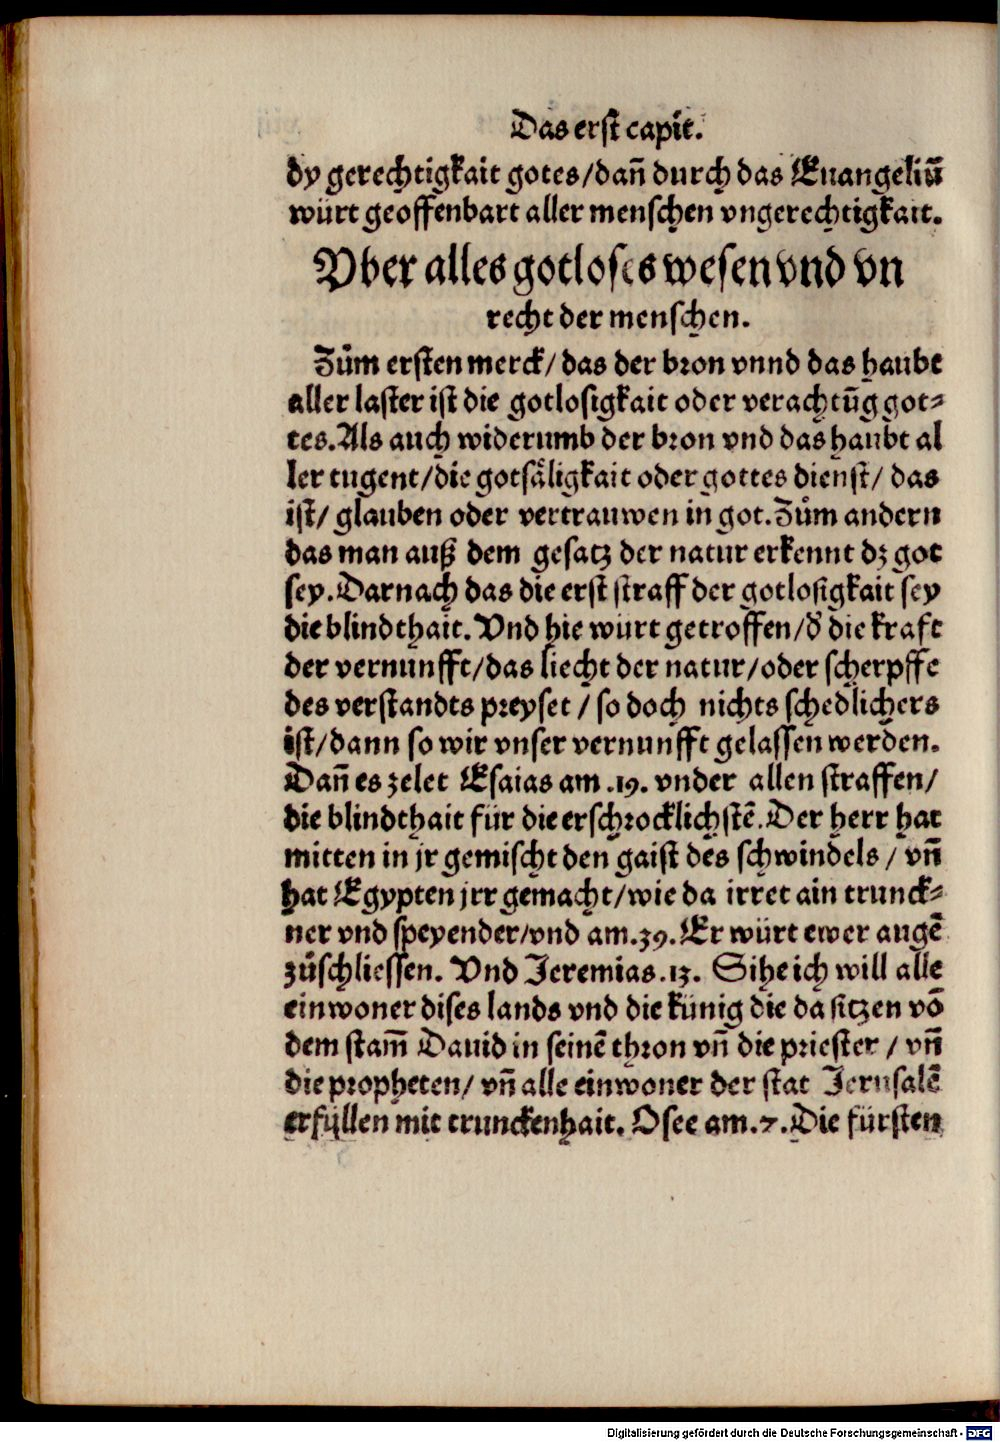 Das erst capit.
dy gerechtigkait gotes/dañ durch das Euangeliū
würt geoffenbart aller menschen vngerechtigkait.
Vber alles gotloses wesen vnd vn
recht der menschen.
Zům ersten merck/ das der bron vnnd das haubt
aller laster ist die gotlosigkait oder verachtūg got-
tes. Als auch widerumb der bron vnd das haubt al
ler tugent/die gotsåligkait oder gottes dienst/ das
ist/ glauben oder vertrauwen in got. Zům andern
das man auß dem gesatz der natur erkennt dz got
sey. Darnach das die erst straff der gotlosigkait sey
die blindthait. Vnd hie würt getroffen/d̄ die kraft
der vernunfft/das liecht der natur/oder scherpffe
des verstandts preyset / so doch nichts schedlichers
ist/dann so wir vnser vernunfft gelassen werden.
Dañ es zelet Esaias am .19. vnder allen straffen/
die blindthait für die erschrocklichstē. Der herr hat
mitten in jr gemischt den gaist des schwindels / vñ
hat Egypten jrr gemacht/wie da irret ain trunck-
ner vnd speyender/vnd am.39. Er würt ewer augē
zůschliessen. Vnd Jeremias.13. Sihe ich will alle
einwoner dises lands vnd die künig die da sitzen vō
dem stam̄ Dauid in seinē thron vñ die priester / vñ
die propheten/ vñ alle einwoner der stat Jerusalē
erfüllen mit trunckenhait. Osee am.7. Die fürsten
Digitalisierung gefördert durch die Deutsche Forschungsgemeinschaft - DFG